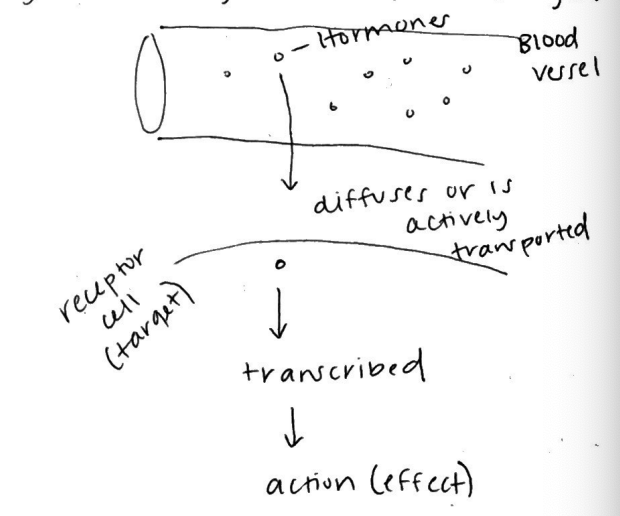 Hormones
Blood
vessel
diffuses or is
actively
transported
receptor
cell
(target)
transcribed
action (effect)